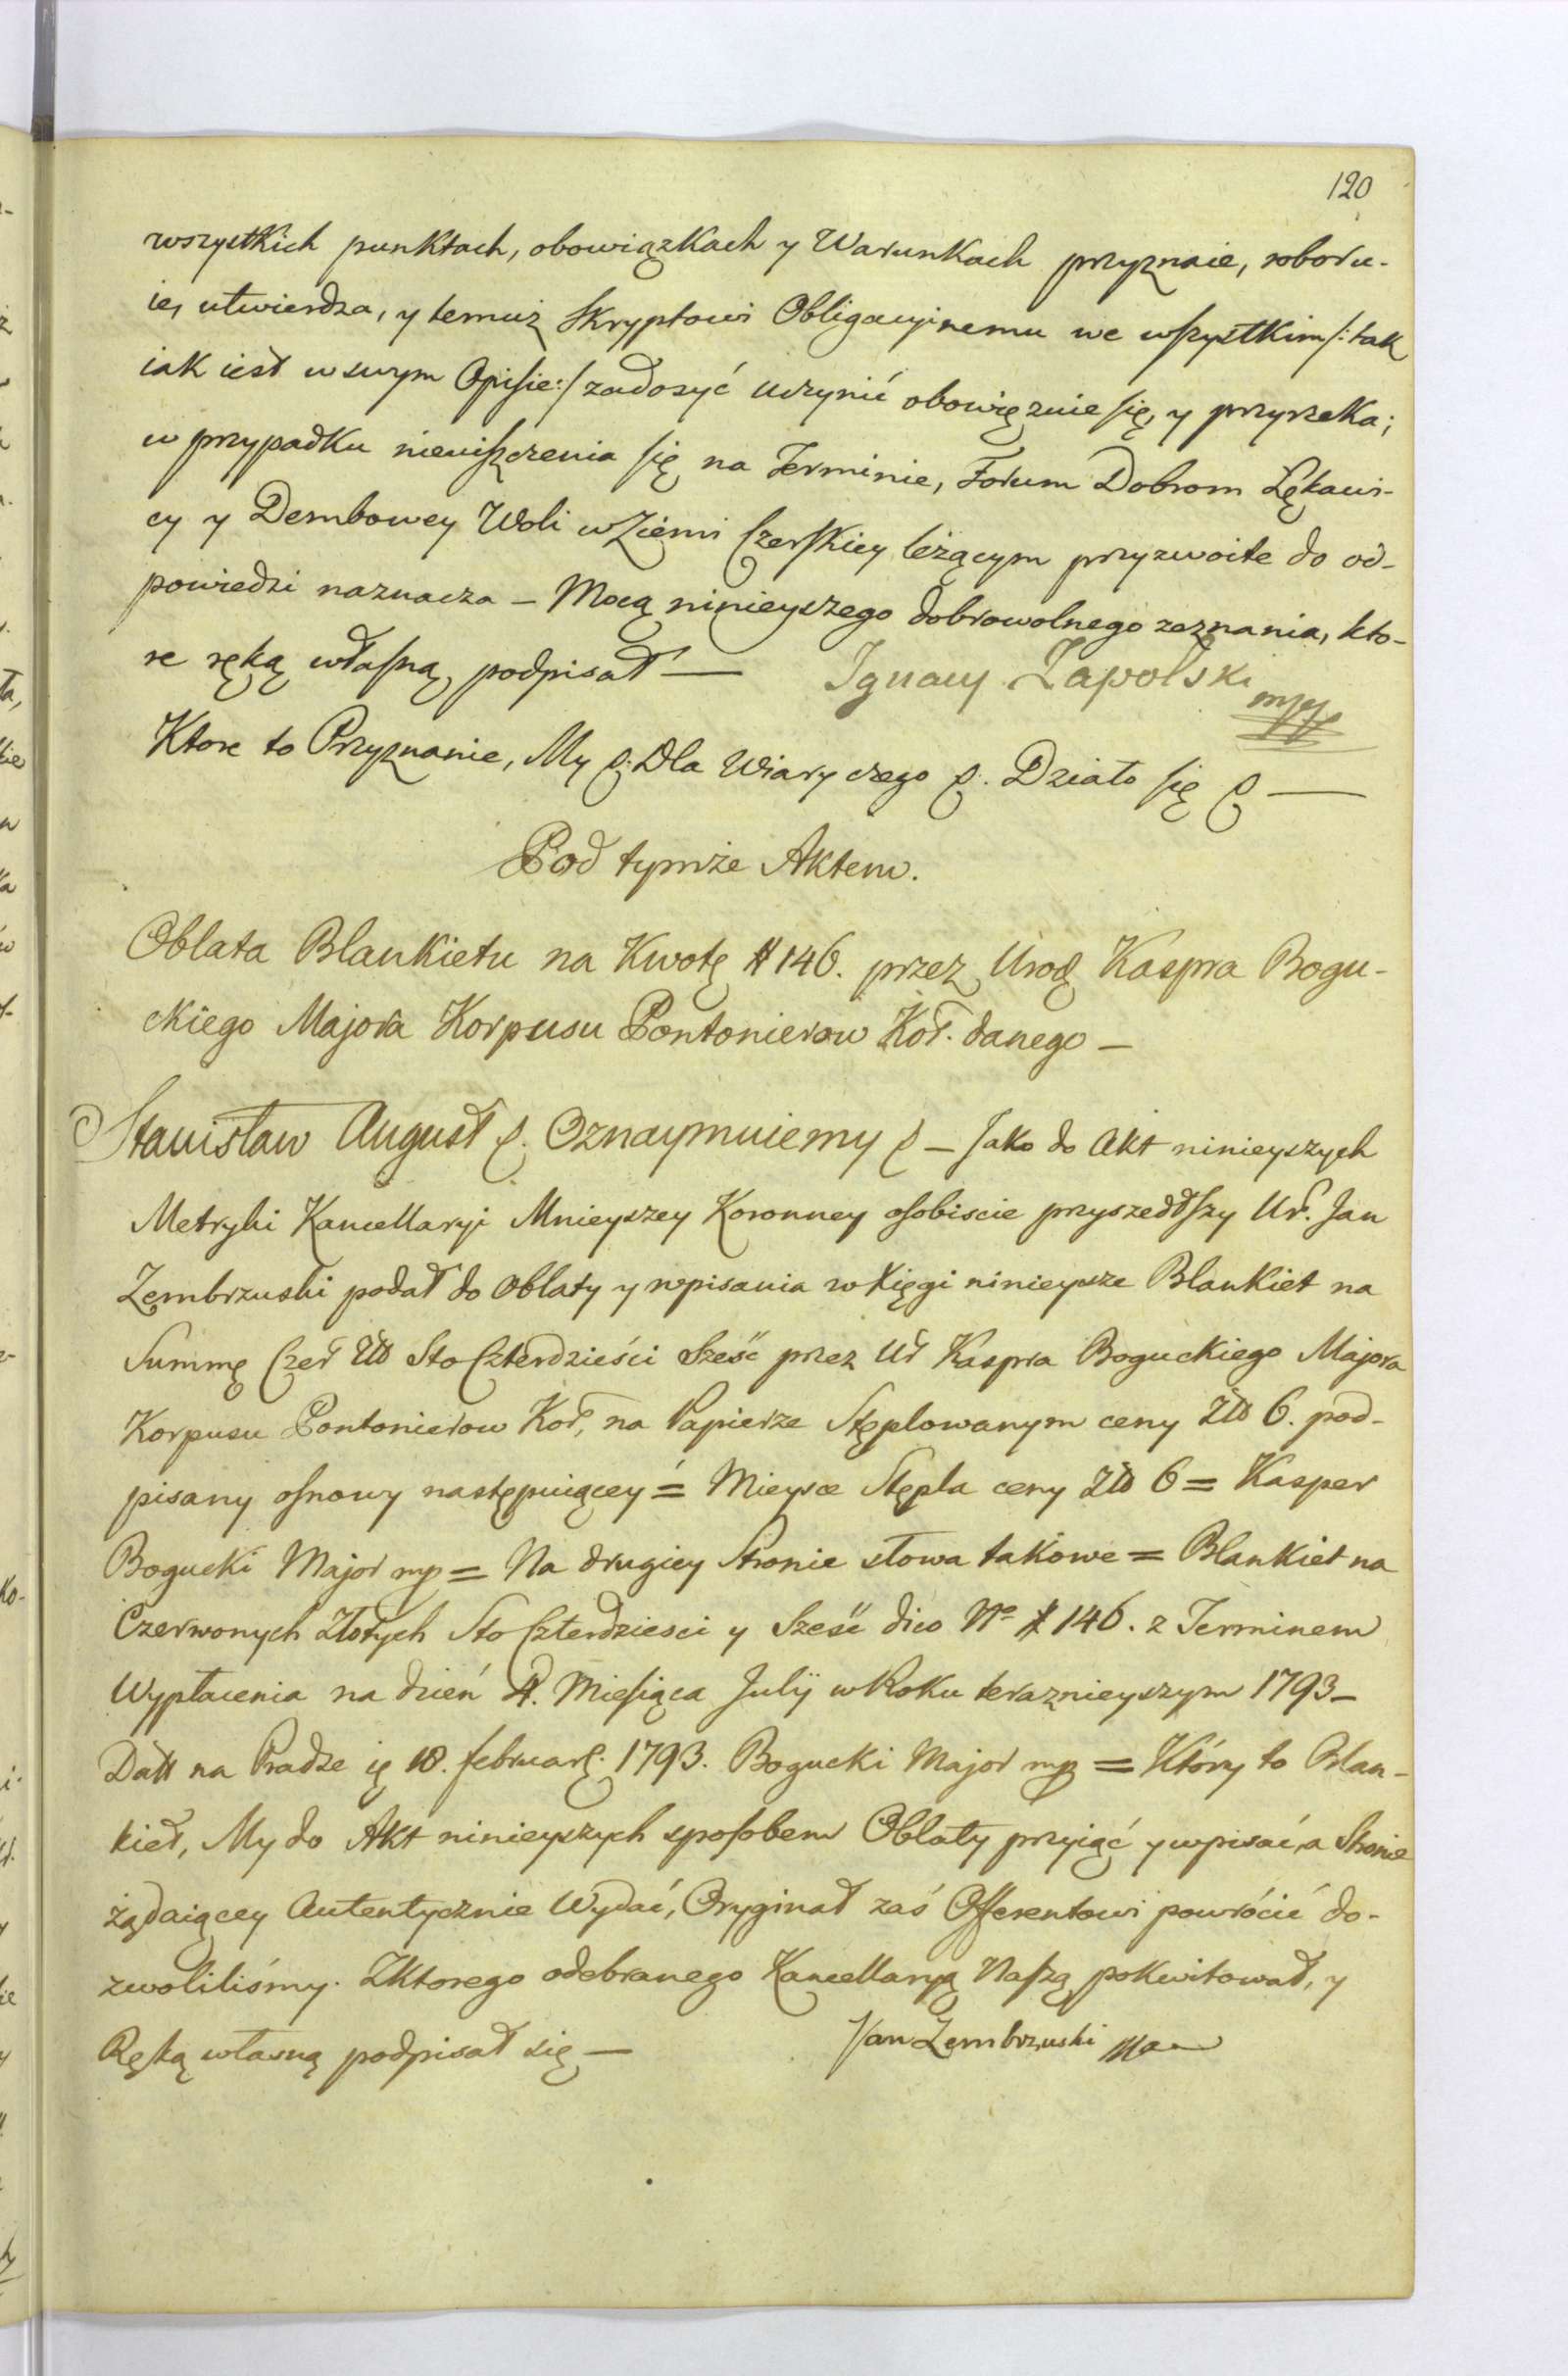 120
wszystkich punktach, obowiązkach y Warunkach przyznaie, roboru-
ie, utwierdza, y temuż Skryptowi Obligacyinemu we wszystkim /: tak
iak iest w swym Opisie :/ zadosyć uczynić obowięzuie się, y przyrzeka;
w przypadku nieuiszczenia się na Terminie, Forum Dobrom Lękawi-
cy y Dembowey Woli w Ziemi Czerskiey leżącym przyzwoite do od-
powiedzi naznacza – Mocą ninieyszego dobrowolnego zeznania, kto-
re ręką własną podpisał — Ignacy Zapolski mpp
Ktore to Przyznanie, My &. Dla Wiary czego &. Działo się & —
Pod tymże Aktem.
Oblata Blankietu na Kwotę # 146. przez Urod Kaspra Bogu-
ckiego Majora Korpusu Pontonierow Kor. danego –
Stanisław August &. Oznaymuiemy & – Jako do Akt ninieyszych
Metryki Kancellaryi Mnieyszey Koronney osobiscie przyszedłszy Ur. Jan
Zembrzuski podał do Oblaty y wpisania w Xięgi ninieysze Blankiet na
Summę Czer Zło Sto Czterdzieści Sześć przez Ur Kaspra Boguckiego Majora
Korpusu Pontonierow Kor, na Papierze Stęplowanym ceny Zło 6. pod-
pisany osnowy następuiącey = Mieysce Stępla ceny Zło 6 = Kasper
Bogucki Major mp = Na drugiey Stronie słowa takowe = Blankiet na
Czerwonych Złotych Sto Czterdziesci y Sześć dico No # 146. z Terminem
Wypłacenia na dzień 4. Miesiąca Julij w Roku teraznieyszym 1793 –
Datt na Pradze ię 18. februar. 1793. Bogucki Major mp = Który to Blan-
kiet, My do Akt ninieyszych sposobem Oblaty przyiąć y wpisać, a Stronie
żądaiącey Autentycznie Wydać, Oryginał zaś Offerentowi powrócić do-
zwoliliśmy. Z ktorego odebranego Kancellaryą Naszą pokwitował, y
Ręką własną podpisał się — Jan Zembrzuski